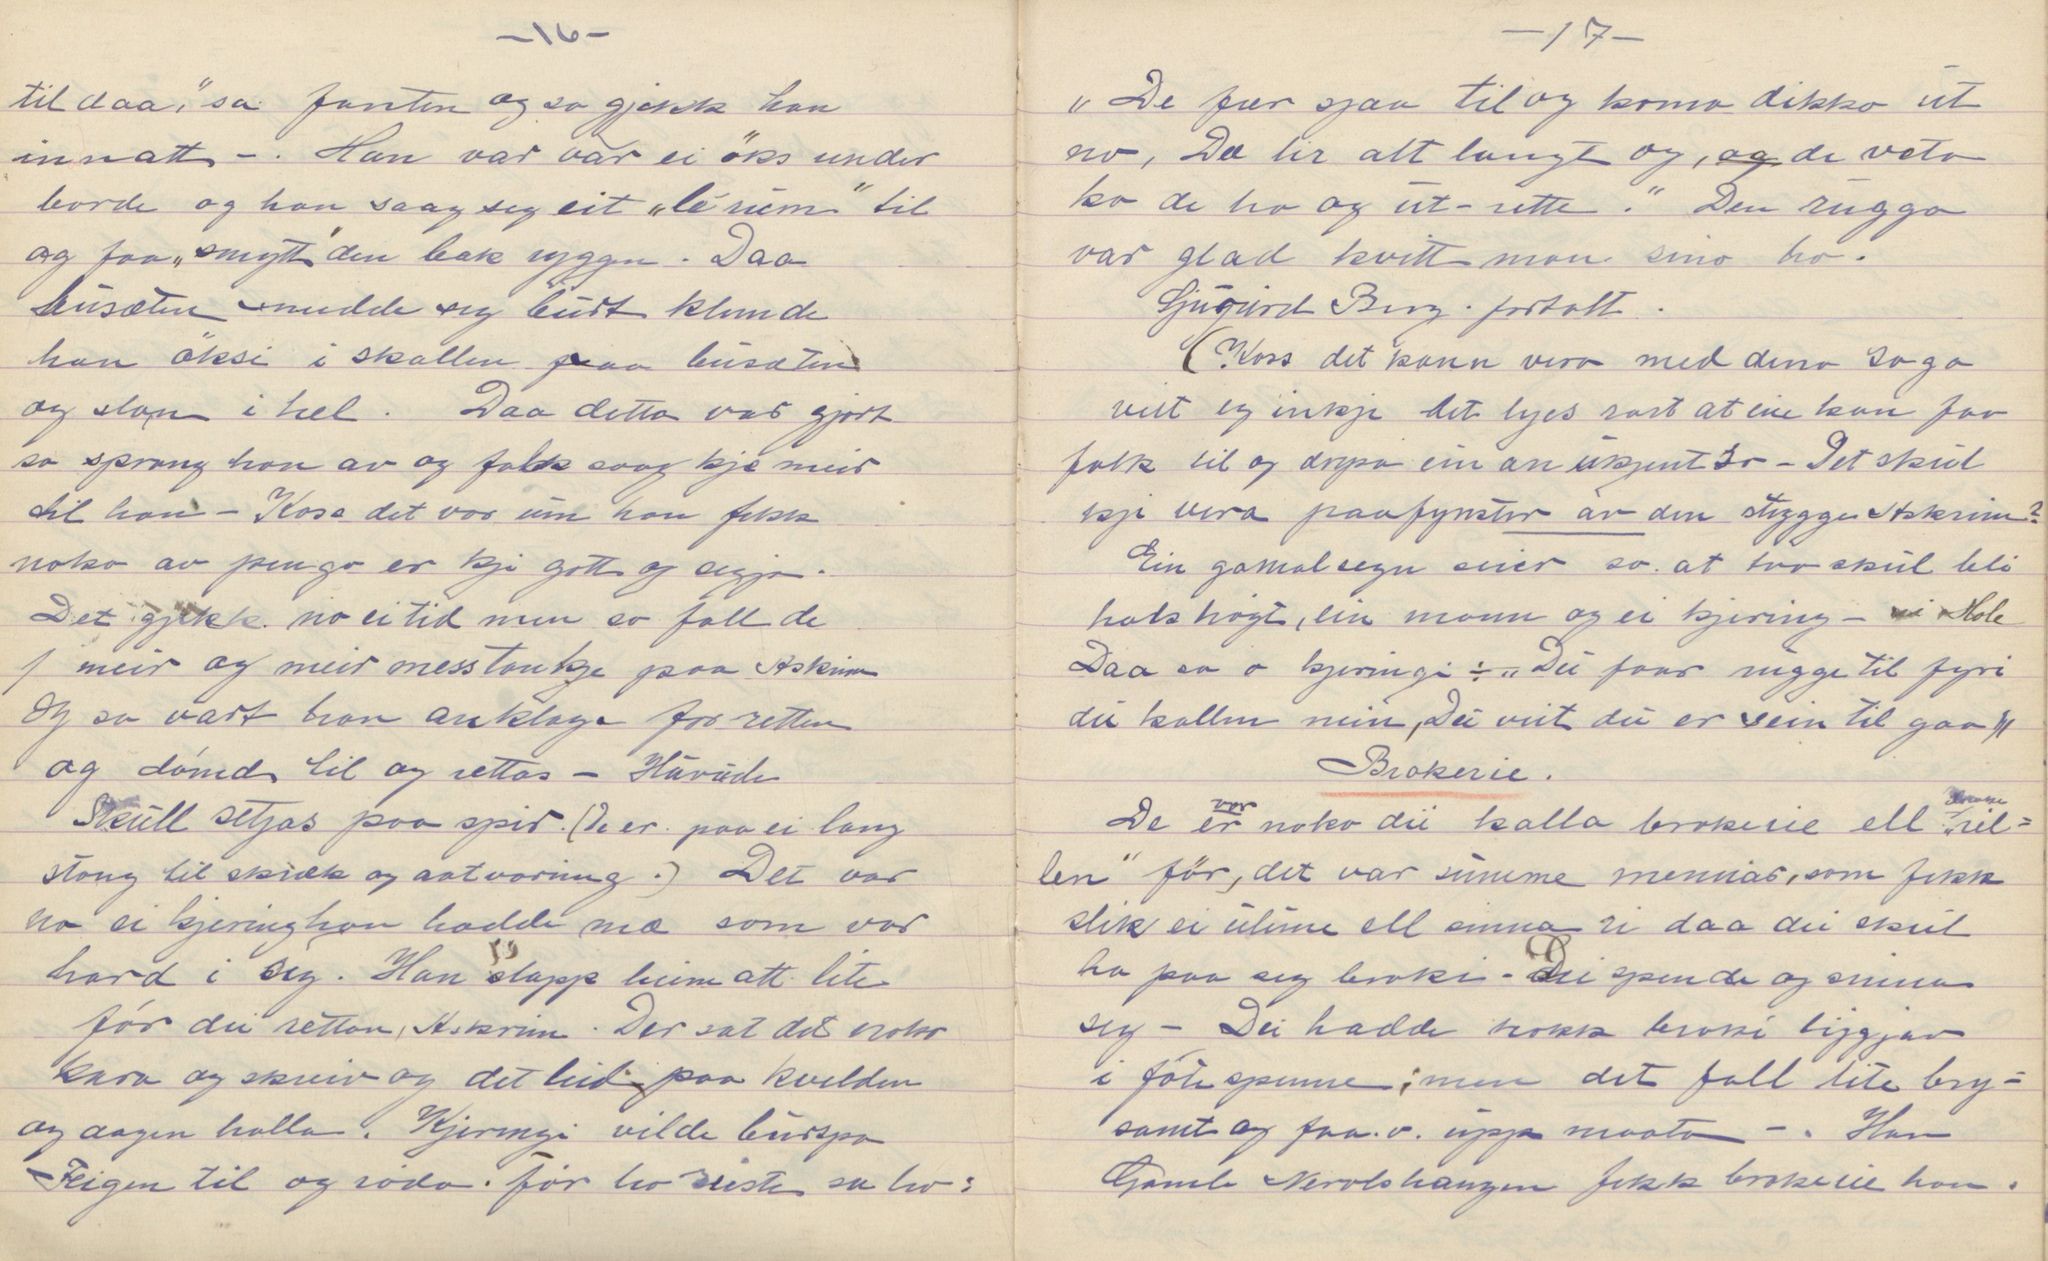 -16-
til daa," sa fanten og so gjekk han
innatt -. Han var var ei öks under
borde og han saag seg eit "lérüm" til
og faa "smytt" den bak ryggen. Daa
büsæten snudde seg bürt klemde
han öksi i skallen paa büsæten
og slo'n i hel. Daa detta var gjort
so sprang han av og folk saag kje meir
til han - Koss det var üm han fekk
noko av pengo er kje gott og segja.
Det gjekk no ei tid men so fall de
meir og meir messtankje paa Askrim
Og so vart han anklaga for retten
og dömd til og rettas - Hüvüde
Sküll setjas paa spir. (De er. paa ei lang
stong til skræk og aatvaring.) Det var
no ei kjering han hadde næ som var
hard i seg. Han slapp heim att lite
för dei rettan, Askrim. Der sat det noko
kara og skreiv og det leid paa kvelden
og dagen halla. Kjeringi vilde bürspa
Feigen til og röda. för ho reiste sa ho:
-17-
"De fær sjaa til og koma dikko üt
no, Dæ lir alt langt og, og de veta
ko de ha og üt-rette." Den rügga
var glad kvitt mannen sino ho.
Sjügürd Berg. fortalt.
(Koss det kann vera med dena soga
veit eg inkje det lyes rart at ein kan faa
folk til og drepa ein an ükjent so - Det skül
kje vera paafynster av den stygge Askrim?
Ein gamal segn seier so. at two skül bli
halshögt, ein mann og ei kjering - i Hole
Daa sa o kjeringi ÷ "Dü faar rügge til fyri
dü kallen min, Dü veit dü er sein til gaa")
Brokerie.
De er var noko dei kalla brokerie ell "ril-
len" för, det var sümme menniar, som fekk
slik ei ülüme ell sinna ri daa dei skül
ha paa seg broki - Dei spende og sinna
seg - Dei hadde nokk broki liggjav
i föte spenne; men det fall lite bry-
samt og faa. o. üpp maata -. Han
Gamle Nerolshaugen fekk brokerie han.